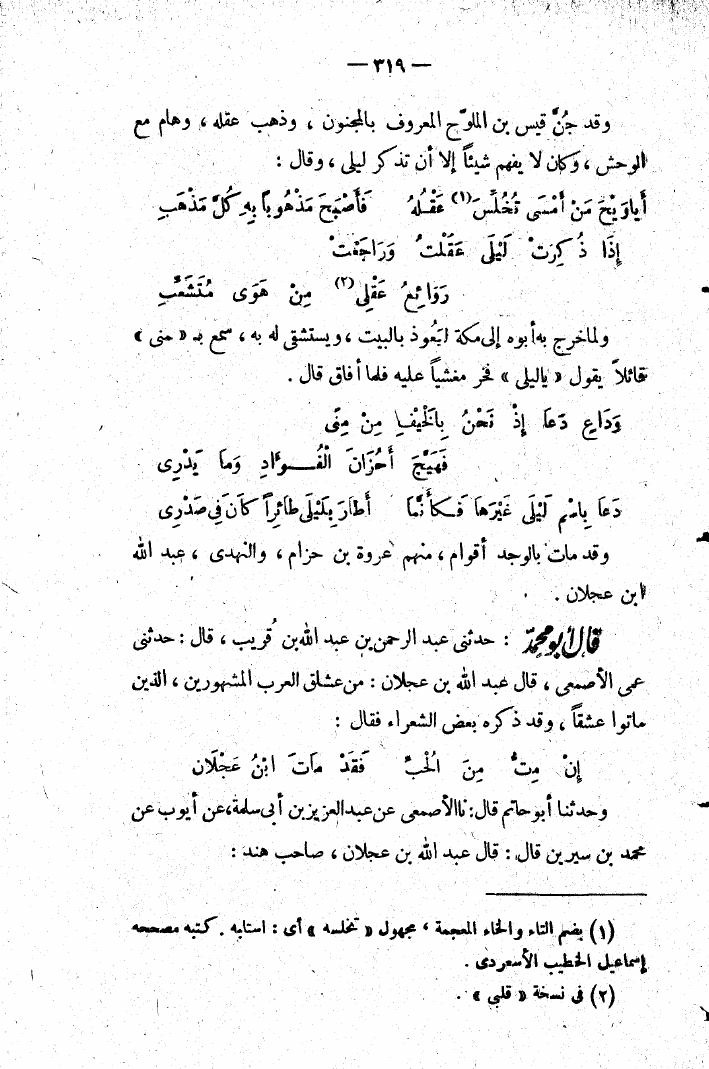 — ٣١٩ —
وقد جُنَّ قيس بن الملوّح المعروف بالمجنون ، وذهب عقله ، وهام مع
الوحش ، وكان لا يفهم شيئاً إلا أن تذكر ليلى ، وقال :
أَياوَيْحَ مَنْ أَمْسَى تُخُلِّسَ(١) عَقْلُهُ فَأَصْبَحَ مَذْهُوباً بِهِ كُلَّ مَذْهَبِ
إِذَا ذُكِرَتْ لَيْلَى عَقَلْتُ وَرَاجَعَتْ
رَوَائِعُ عَقْلِى(٢) مِنْ هَوَى مُتَشَعِّبِ
ولما خرج به أبوه إلى مكة ليَعُوذ بالبيت ، ويستشفى له به ، سمع بـ « منى »
قائلاً يقول « ياليلى » فخر مغشياً عليه فلما أفاق قال .
وَدَاعٍ دَعَا إِذْ نَحْنُ بِالْخَيْفِ مِنْ مِنًى
فَهَيَّجَ أَحْزَانَ الْفُـــؤَادِ وَمَا يَدْرِى
دَعَا بِاسْمِ لَيْلَى غَيْرَهَا فَـكأَنَّمَا أَطَارَ بِلَيْلَى طَائِراً كَانَ فِى صَدْرِى
وقد مات بالوجد أقوام ، منهم عروة بن حزام ، والنهدى ، عبد الله
ابن عجلان .
قال أبو محمّد : حدثنى عبد الرحمن بن عبد الله بن قُريب ، قال : حدثنى
عمى الأصمعى ، قال عبد الله بن عجلان : من عشاق العرب المشهورين ، الذين
ماتوا عشقاً ، وقد ذكره بعض الشعراء فقال :
إِنْ مِتُّ مِنَ الْحُبِّ فَقَدْ مَاتَ ابْنُ عَجْلَان
وحدثنا أبو حاتم قال : نا الأصمعى عن عبدالعزيز بن أبى سلمة ، عن أيوب عن
محمد بن سيرين قال : قال عبد الله بن عجلان ، صاحب هند :
(١) بضم التاء والخاء المعجمة ، مجهول « تخلسه » أى : استلبه . كتبه مصححه
إسماعيل الخطيب الأسعردى .
(٢) فى نسخة « قلبى » .